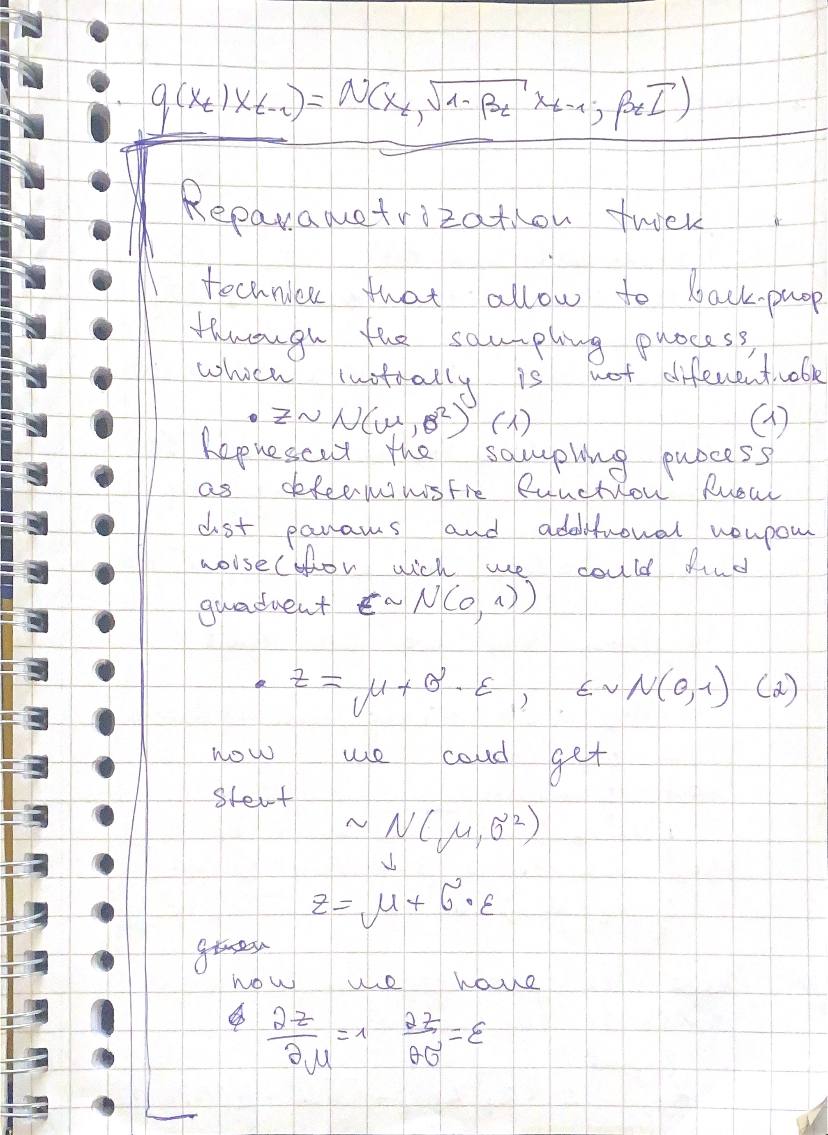 q(xₜ)xₜ₋₁) = N(xₜ, √1-βₜ xₜ₋₁; βₜI)
Reparametrization trick
technick that allow to back-prop
through the sampling process,
which initially is not diferentiable
• z ~ N(μ, σ²) (1) (1)
Represent the sampling process
as deterministic function from
dist params and additional
noise (for wich we could find
gradient ε ~ N(0, 1))
• z = μ + σ · ε , ε ~ N(0,1) (2)
now we coud get
~ N(μ, σ²)
↓
z = μ + σ · ε
now we have
∂z/∂μ = 1 ∂z/∂σ = ε